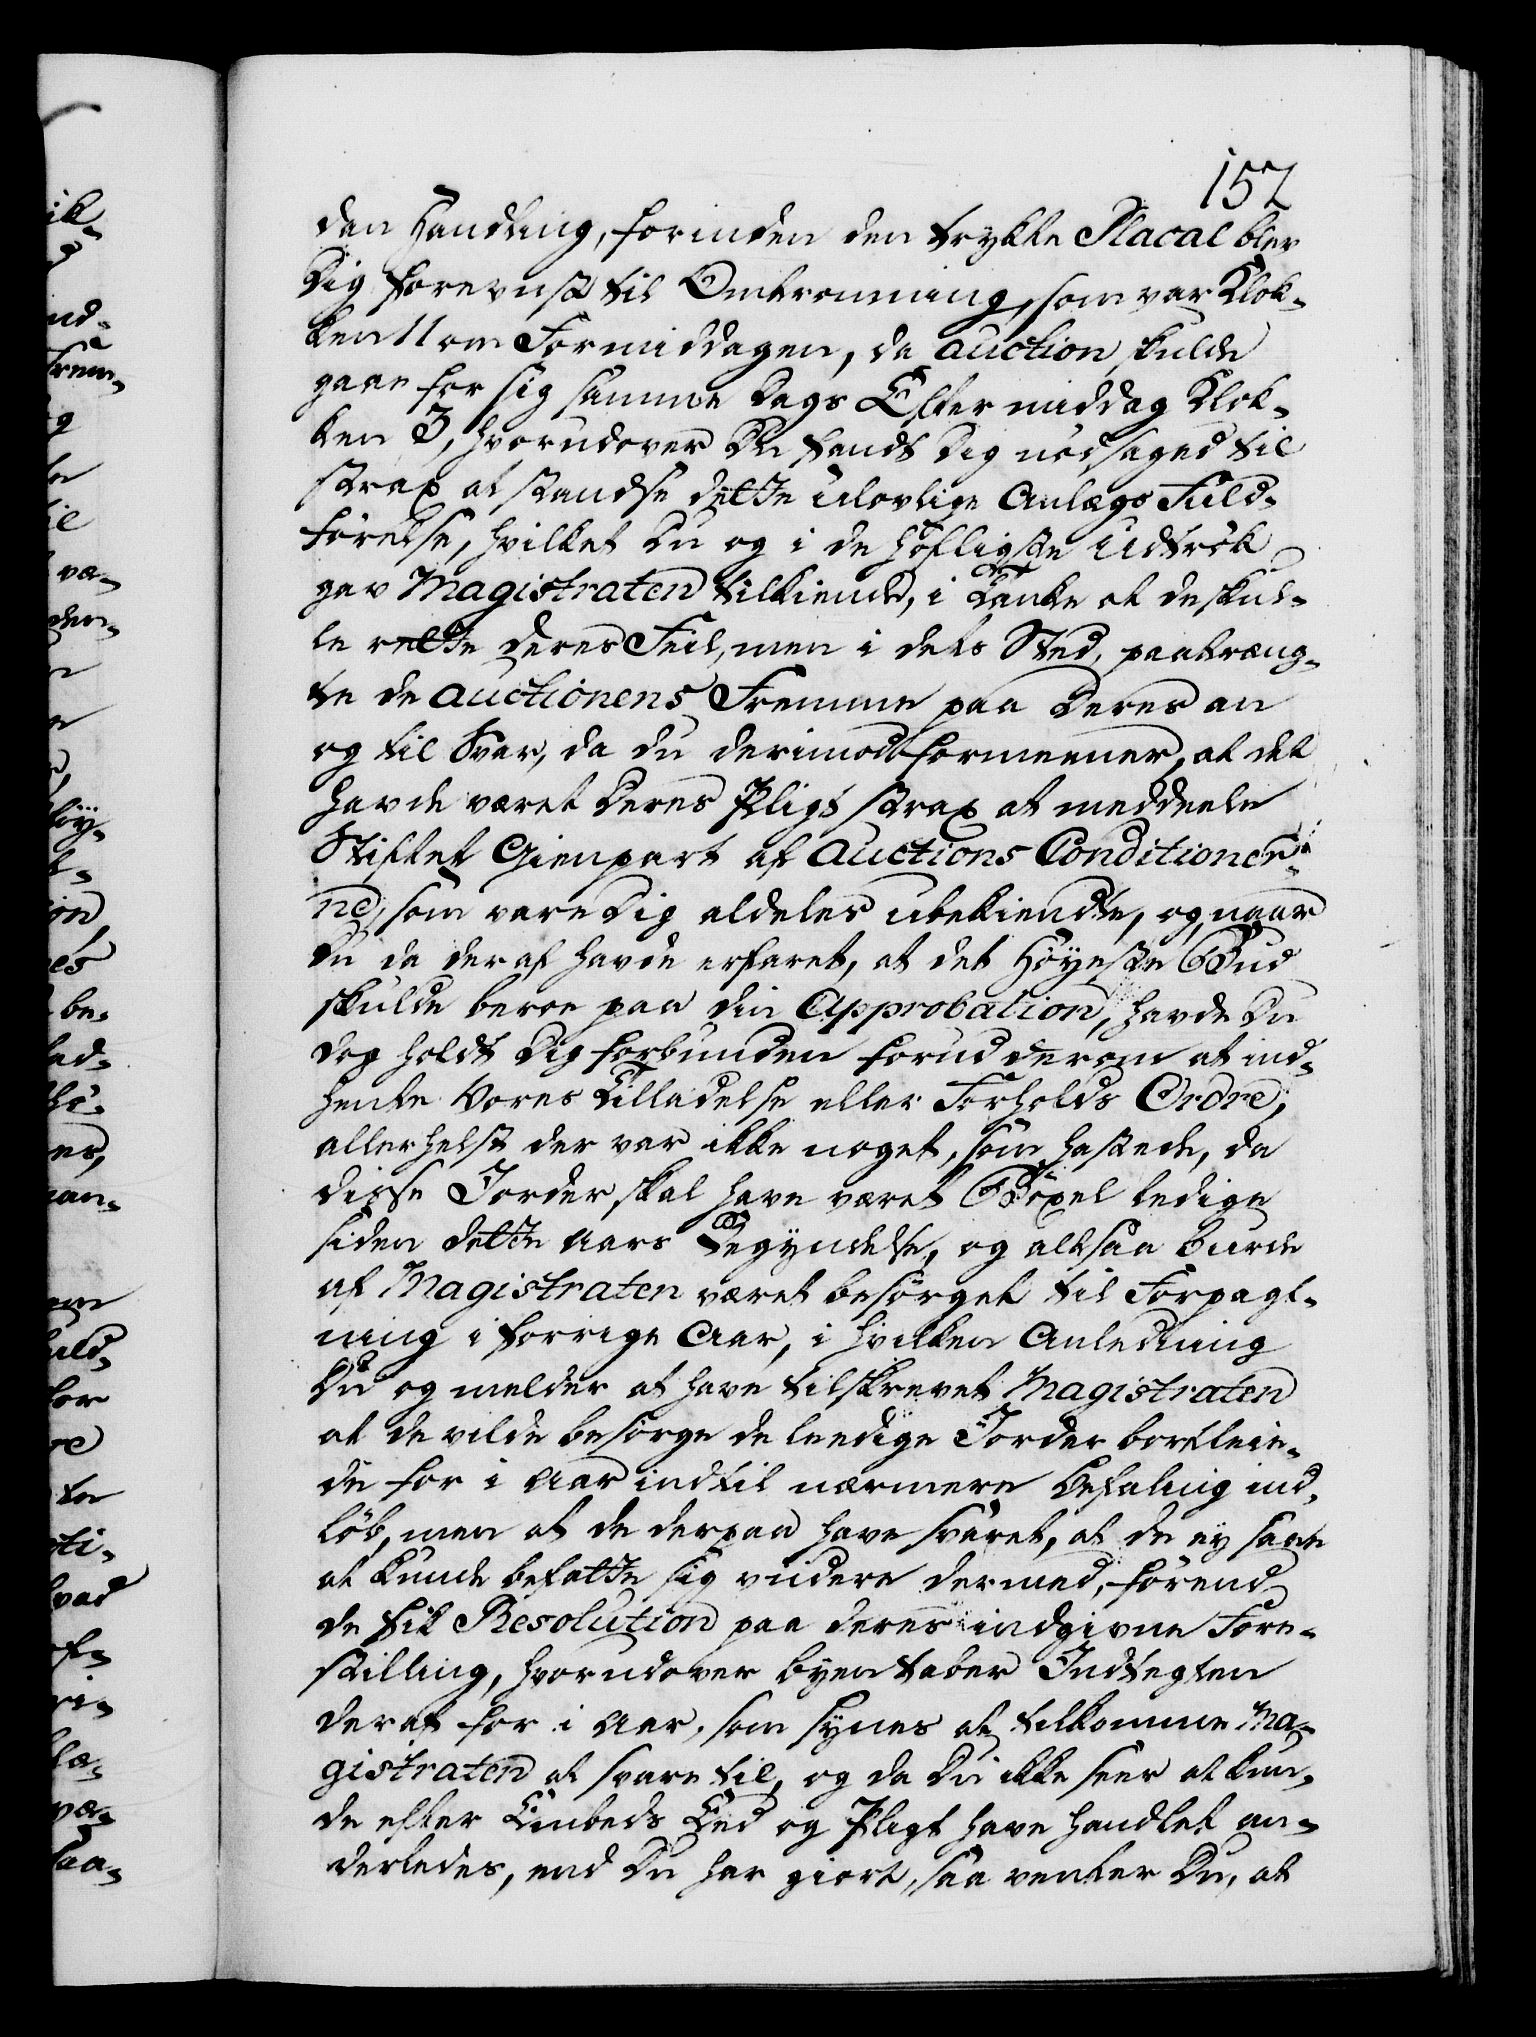 157
den Handling, forinden den trykte Placat blev
Dig foreviist til Omtromning, som var Klok-
ken 11 om Formiddagen, da auction skulde
gaae for sig samme Dags Eftermiddag Klok-
ken 3, hvorudover Du fandt Dig nødsaged til
strax at standse dette ulovlige Anlægs Fuld-
førelse, hvilket Du og i de høfligste Udtrøk
gav Magistraten tilkiende, i Tanke at de skul-
le rette deres Feil, men i dets Sted, paatræng-
te de auctionens Fremme paa Deres an
og til Svar, da du derimod formeener, at det
havde været Deres Pligt strax at meddeele
Stiftet Gienpart af Auctions Conditioner-
ne, som vare Dig aldeles ubekiendte, og naar
Du da deraf havde erfaret, at det Høyeste Bud
skulde beroe paa din Approbation, havde Du
dog holdt Dig forbunden forud derom at ind-
hente Vores Tilladelse eller Forholds Ordre,
allerhelst der var ikke noget, som hastede, da
disse Jorder skal have været Bøxel ledige
siden dette Aars Begyndelse, og altsaa burde
af Magistraten været besørget til Forpagt-
ning i forrige Aar, i hvilken Anledning
Du og melder at have tilskrevet Magistraten
at de vilde besørge de leedige Jorder bortleie-
de for i Aar indtil nærmere Befaling ind-
løb, men at de derpaa have svaret, at de ey saae
at kunde befatte sig viidere dermed, førend
de fik Resolution paa deres indgivne Fore-
stilling, hvorudover byen taber Indtegten
deraf for i Aar, som synes at tilkomme Ma-
gistraten at svare til, og da Du ikke seer at kun-
de efter Embeds Eed og Pligt have handlet an-
derledes, end Du har giort, saa venter Du, at